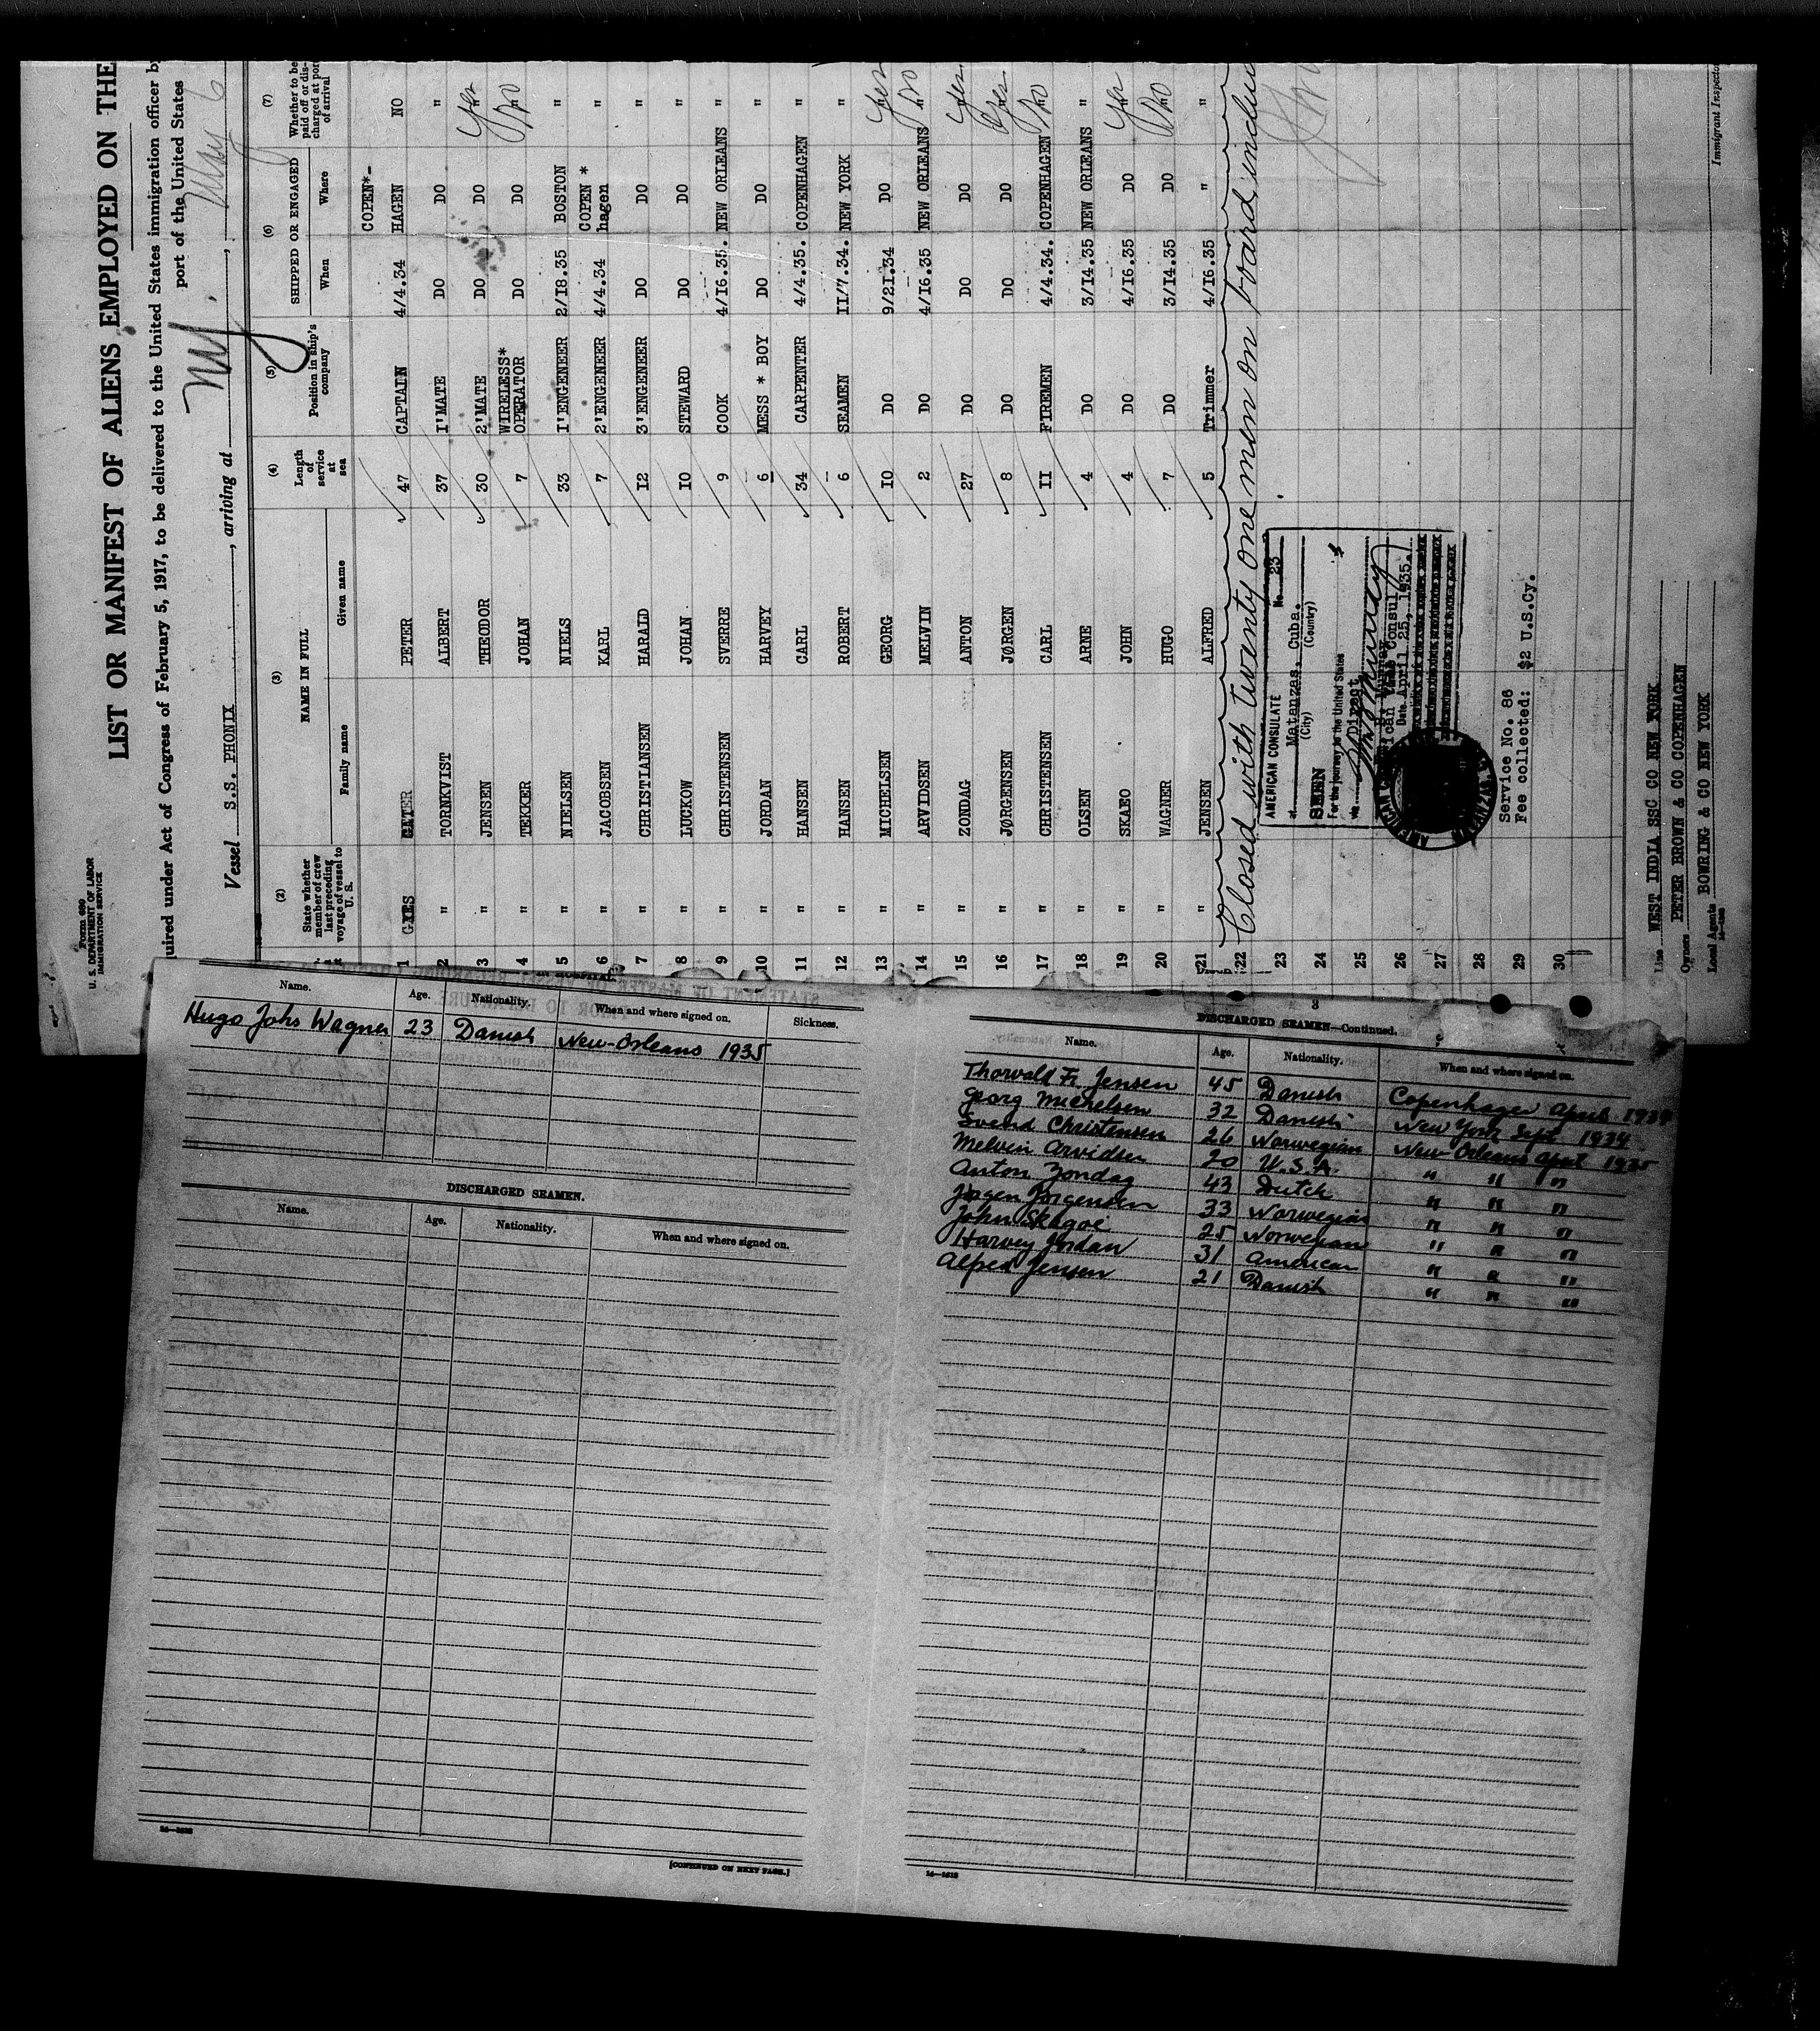 Form 680
U. S. DEPARTMENT OF LABOR
IMMIGRATION SERVICE
LIST OR MANIFEST OF ALIENS EMPLOYED ON THE
uired under Act of Congress of February 5, 1917, to be delivered to the United States immigration officer by
port of the United States
Vessel S.S. PHONIX, arriving at N.Y., May 6
(2) (3) (4) (5) (6) (7)
State whether member of crew last preceding voyage of vessel to U. S.
NAME IN FULL
Family name Given name
Length of service at sea
Position in ship's company
SHIPPED OR ENGAGED
When Where
Whether to be paid off or discharged at port of arrival
1 YES GATER PETER 47 CAPTAIN 4/4.34 COPEN*-HAGEN NO
2 " TORNKVIST ALBERT 37 I'MATE DO DO "
3 " JENSEN THEODOR 30 2'MATE DO DO " Yes
4 " TEKKER JOHAN 7 WIRELESS* OPERATOR DO DO " No
5 " NIELSEN NIELS 33 I'ENGENEER 2/18.35 BOSTON "
6 " JACOBSEN KARL 7 2'ENGENEER 4/4.34 COPEN * hagen "
7 " CHRISTIANSEN HARALD 12 3'ENGENEER DO DO "
8 " LUCKOW JOHAN 10 STEWARD DO DO "
9 " CHRISTENSEN SVERRE 9 COOK 4/16.35. NEW ORLEANS "
10 " JORDAN HARVEY 6 MESS * BOY DO DO "
11 " HANSEN CARL 34 CARPENTER 4/4.35. COPENHAGEN "
12 " HANSEN ROBERT 6 SEAMEN II/7.34. NEW YORK "
13 " MICHELSEN GEORG IO DO 9/21.34 DO " Yes
14 " ARVIDSEN MELVIN 2 DO 4/16.35 NEW ORLEANS " No
15 " ZONDAG ANTON 27 DO DO DO " Yes
16 " JØRGENSEN JØRGEN 8 DO DO DO " Yes
17 " CHRISTENSEN CARL II FIREMEN 4/4.34. COPENHAGEN " No
18 " OLSEN ARNE 4 DO 3/14.35 NEW ORLEANS "
19 " SKAEO JOHN 4 DO 4/16.35 DO " Yes
20 " WAGNER HUGO 7 DO 3/14.35 DO " No
21 " JENSEN ALFRED 5 Trimmer 4/16.35 " "
22 Closed with twenty one men on board, includ
23
24
25
26
27
28
29
30
AMERICAN CONSULATE No. 23
at Matanzas, Cuba.
(City) (Country)
SEEN
For the journey to the United States
via Direct
Murray
American Vice Consul
Date April 25, 1935.
Service No. 86
Fee collected: $2 U.S.Cy.
Line WEST INDIA SSC CO NEW YORK
Owners PETER BROWN & CO COPENHAGEN
Local Agents BOWRING & CO NEW YORK
Immigrant Inspector
IN HOSPITAL.
Name. Age. Nationality. When and where signed on. Sickness.
Hugo Johs Wagner 23 Danish New-Orleans 1935
DISCHARGED SEAMEN.
Name. Age. Nationality. When and where signed on.
16—1613
[CONTINUED ON NEXT PAGE.]
3
DISCHARGED SEAMEN—Continued.
Name. Age. Nationality. When and where signed on.
Thorvald Fr. Jensen 45 Danish Copenhagen April 1934
Georg Michelsen 32 Danish New York Sept 1934
Svend Christensen 26 Norwegian New-Orleans April 1935
Melvin Arvidsen 20 U.S.A. " " "
Anton Zondag 43 Dutch " " "
Jörgen Jörgensen 33 Norwegian " " "
John Skagoe 25 Norwegian " " "
Harvey Jordan 31 American " " "
Alfred Jensen 21 Danish " " "
16—1613